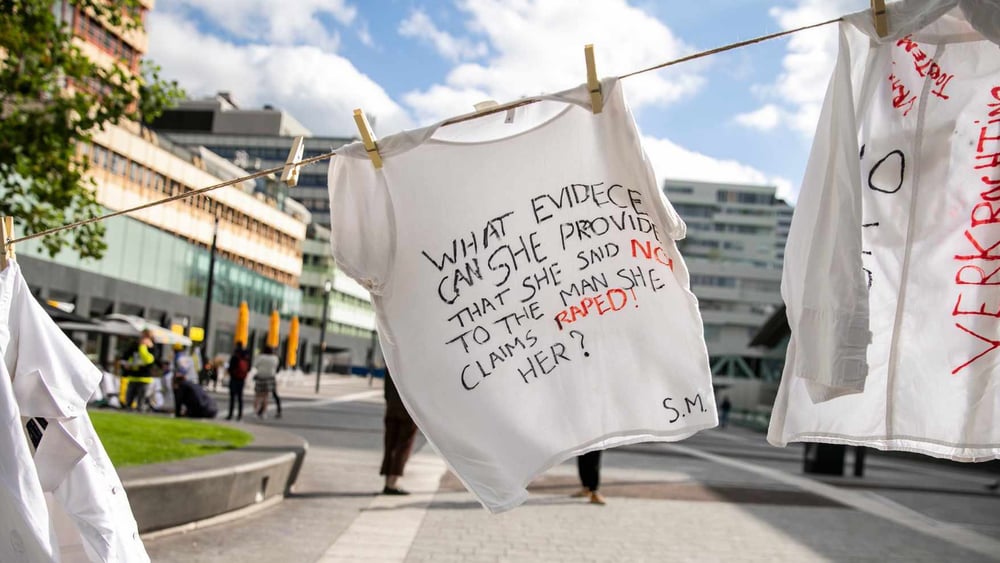 WHAT EVIDECE
CAN SHE PROVIDE
THAT SHE SAID NO
TO THE MAN SHE
CLAIMS RAPED!
HER?
S.M.
VERKRACHTING